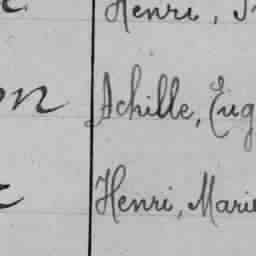 Henri,
Achille, Eug
Henri, Marie